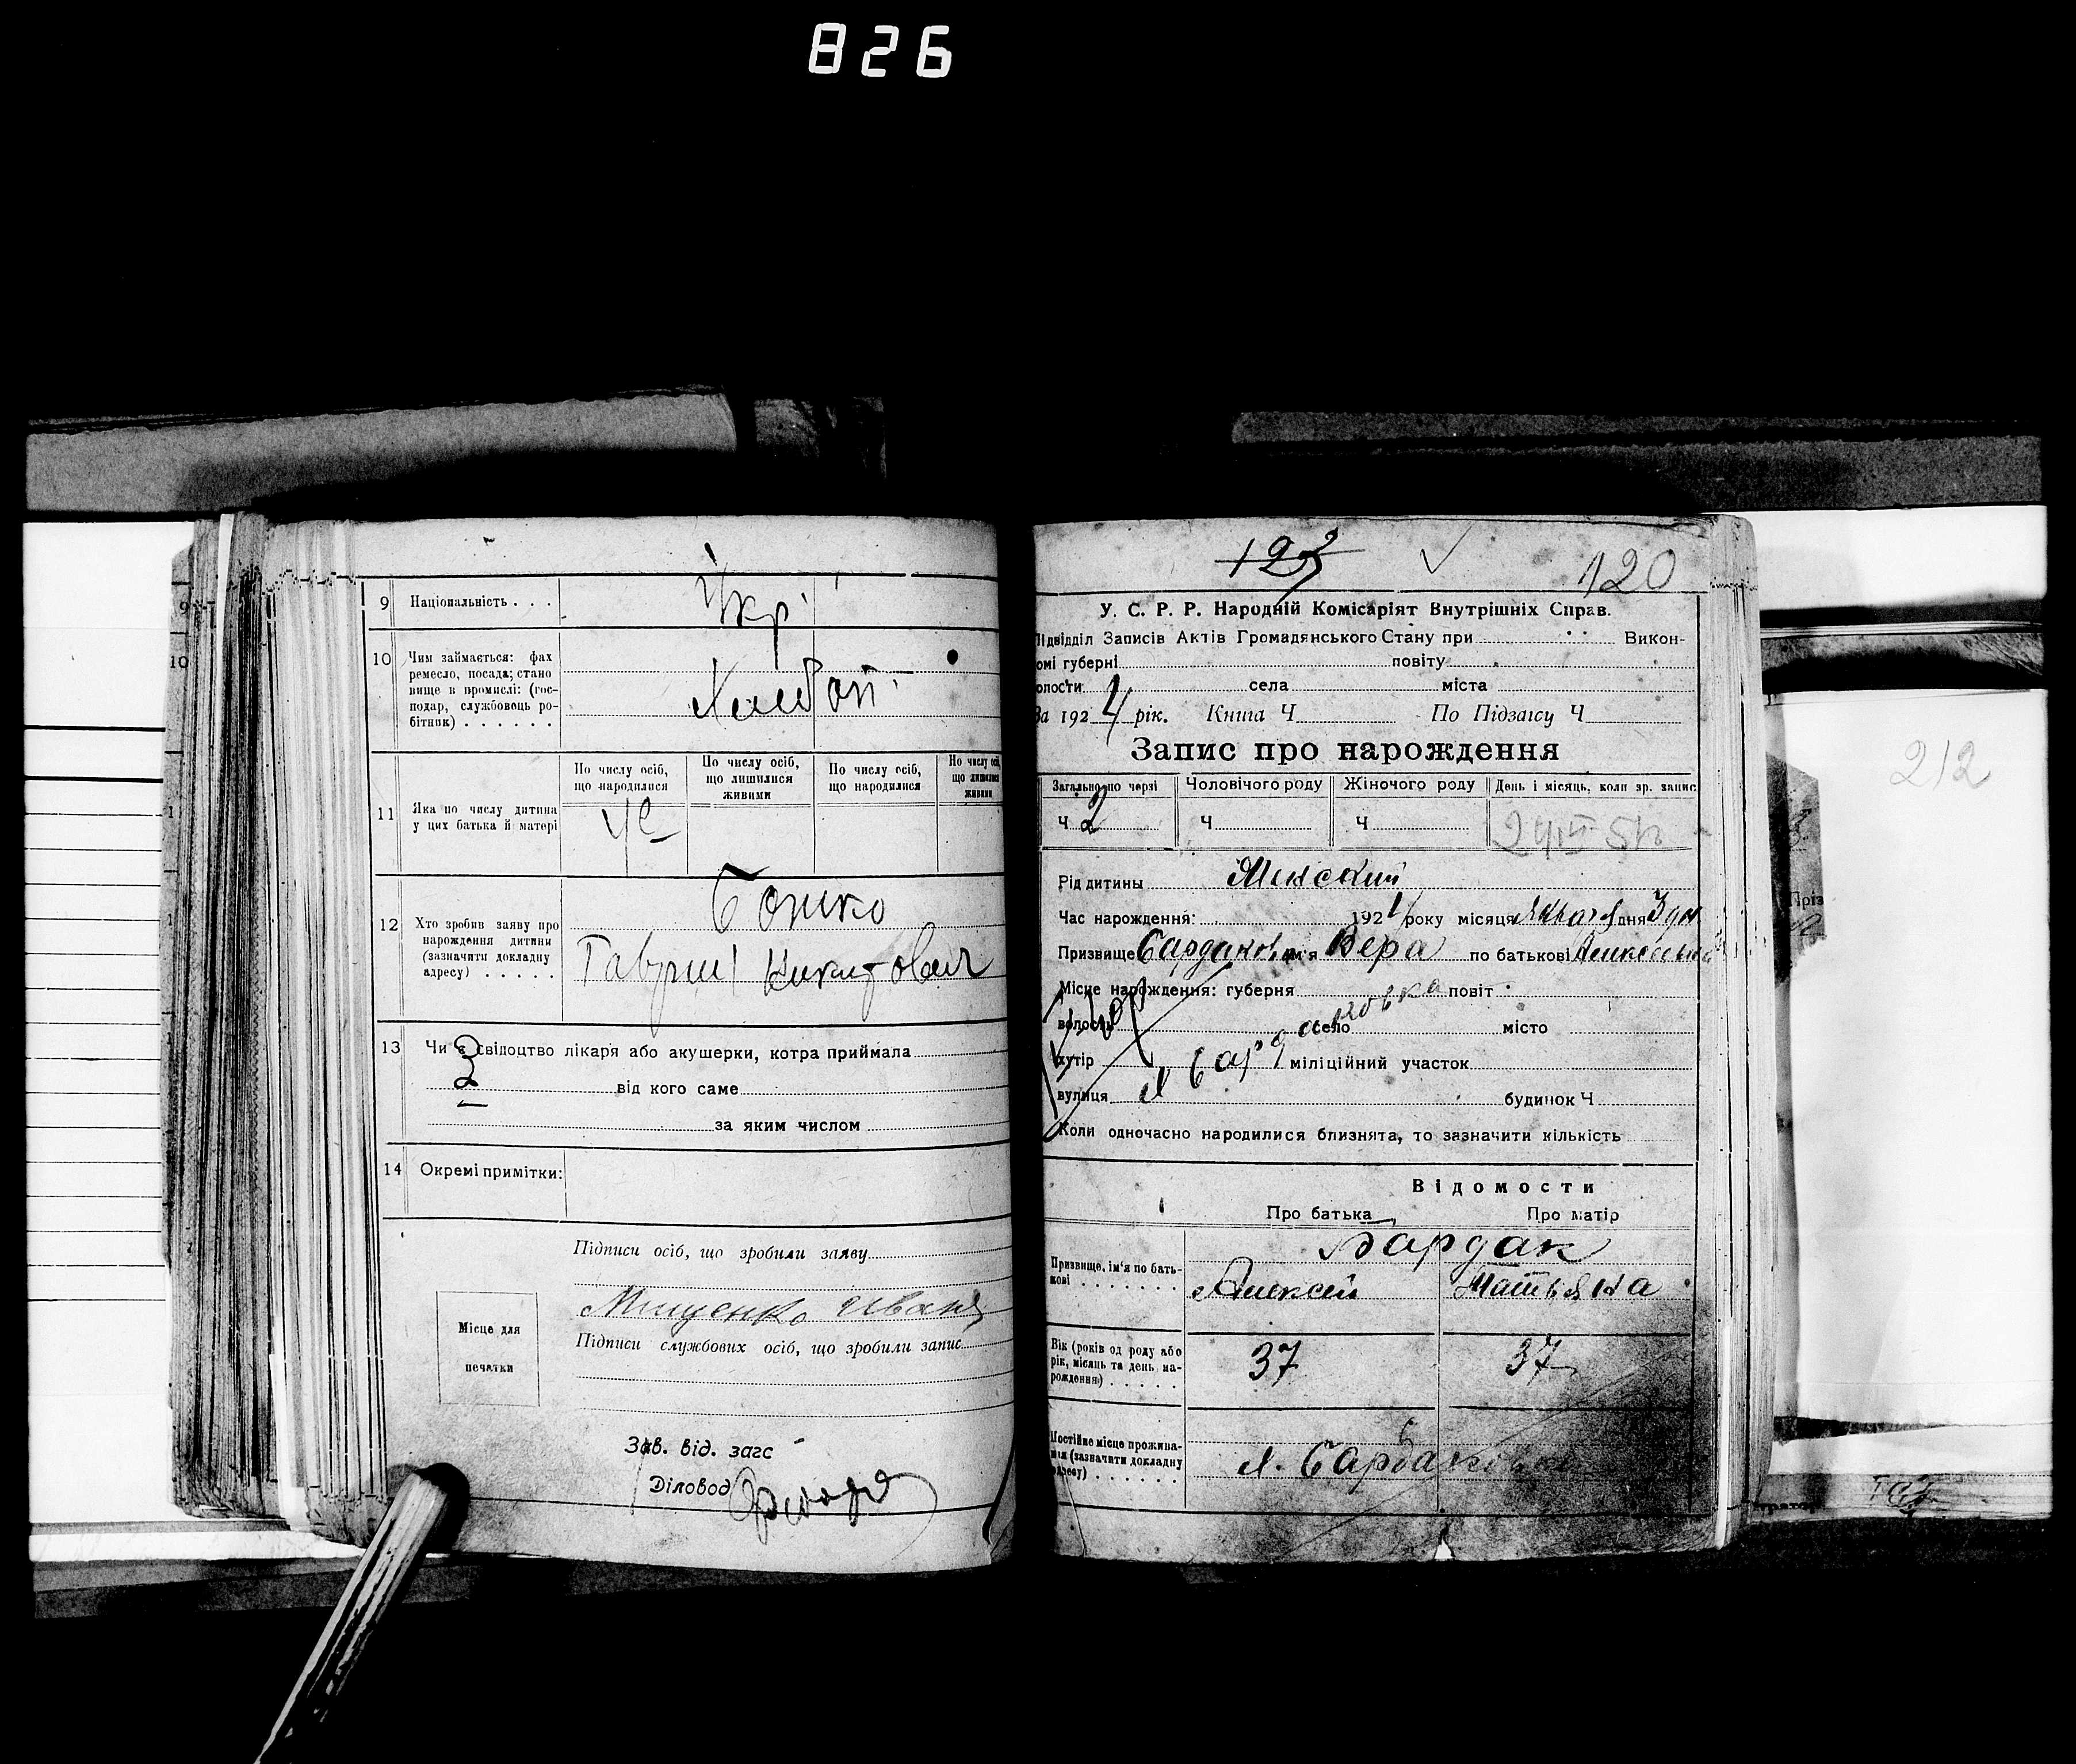 826
9 Національність . . .
Укр
10 Чим займається: фах
ремесло, посада; стано
вище в промислі: (гос-
подар, службовець ро-
бітник) . . . . . .
Хлебоп
По числу осіб,
що народилися
По числу осіб,
що лишилися
живими
По числу осіб,
що народилися
По числу осіб,
що лишилися
живими
11 Яка по числу дитина
у цих батька й матері
12 Хто зробив заяву про
нарождення дитини
(зазначити докладну
адресу) . . . . .
Бошко
Гавриил Никитович
13 Чи є свідоцтво лікаря або акушерки, котра приймала
від кого саме
за яким числом
14 Окремі примітки:
Підписи осіб, що зробили заяву
Мищенко Иван
Підписи службових осіб, що зробили запис
Місце для
печатки
Зав. від. загс
Діловод
123 120
У. С. Р. Р. Народній Комісаріят Внутрішніх Справ.
Підвідділ Записів Актів Громадянського Стану при Викон-
омі губерні повіту
волости села міста
За 1924 рік. Книга Ч По Підзагсу Ч
Запис про нарождення
Загально по черзі Чоловічого роду Жіночого роду День і місяць, коли зр. запис
Ч 2 Ч Ч
Рід дитини Женский
Час нарождення: 1924 року місяця Января дня 3 дня
Призвище Бардаков ім'я Вера по батькові Алексеевна
Місце нарождення: губерня повіт
волость село місто
хутір міліційний участок
х Бардаковка
вулиця будинок Ч
Коли одночасно народилися близнята, то зазначити кількість
Відомости
Про батька Про матір
Бардак
Призвище, ім'я по бать-
кові . . . . . .
Алексей Татьяна
Вік (років од роду або
рік, місяць та день на-
рождення) . . . . .
37 37
Постійне місце прожива-
ння (зазначити докладну
адресу) . . . . . .
х. Бардаковка
212